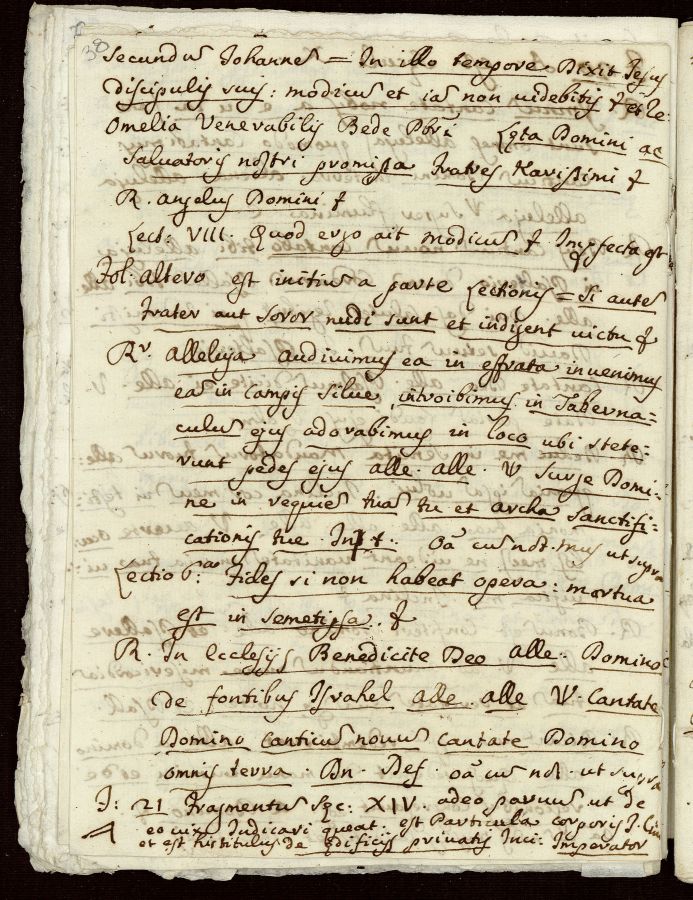 38
secundũ Johannẽ = In illo tempore Dixit Jesus
discipulis suis: modicũ et iã non uidebitis & et Re.
Omelia Venerabilis Bede Pbri Lęta Domini ac
Saluatoris nostri promissa Fratres Karissimi &
R. angelus Domini &
Lect: VIII. Quod ergo ait modicũ & Imꝑfecta est
Fol: altero est initiũ a parte Lectionis = Si autẽ
Frater aut soror nudi sunt et indigent uictu &
Rx. alleluja audiuimus ea in effrata inuenimus
eã in campis silue, introibimus in Taberna=
culũ ejus adorabimus in loco ubi stete=
runt pedes ejus alle. alle. V Surge Domi=
ne in requiẽ tuã tu et archa sanctifi=
cationis tue. Oã cũ ut supra
Lectio Pa: Fides si non habeat opera: mortua
est in semetipsa. &
R. In Ecclesijs Benedicite Deo alle. Domino
de fontibus Israhel alle. alle V Cantate
Domino canticũ nouũ cantate Domino
omnis terra Bn. Def. oã cũ not. ut supra
J: 21 Fragmentũ Sęc. XIV. adeo paruũ ut de
eo uix Judicari queat. est Particula corporis J. Ciui
et est tustitulus de ędificijs priuatis Inci: Imperator